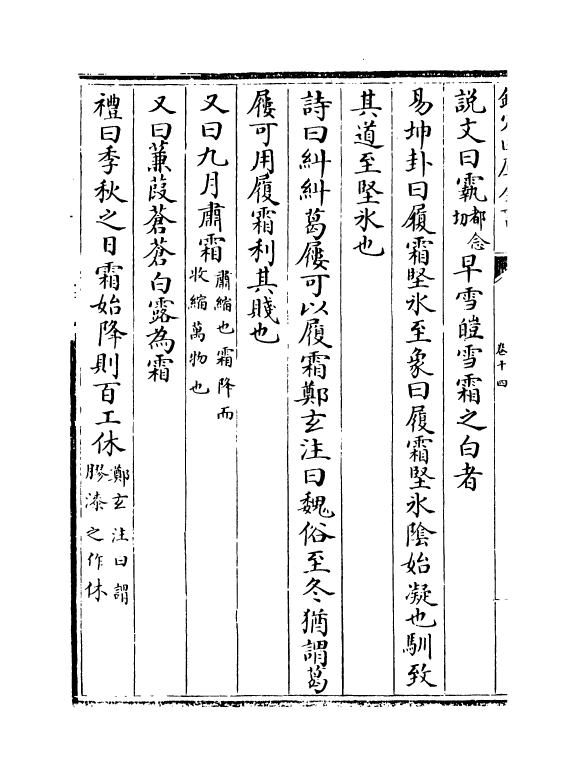 卷十四
説文曰霿都念切早雪皚雪霜之白者
易坤卦曰履霜堅氷至象曰履霜堅氷陰始凝也馴致
其道至堅氷也
詩曰糾糾葛屨可以履霜鄭玄注曰魏俗至冬猶謂葛
屨可用履霜利其賤也
又曰九月肅霜肅縮也霜降而收縮萬物也
又曰蒹葭蒼蒼白露為霜
禮曰季秋之日霜始降則百工休鄭玄注曰謂膠漆之作休